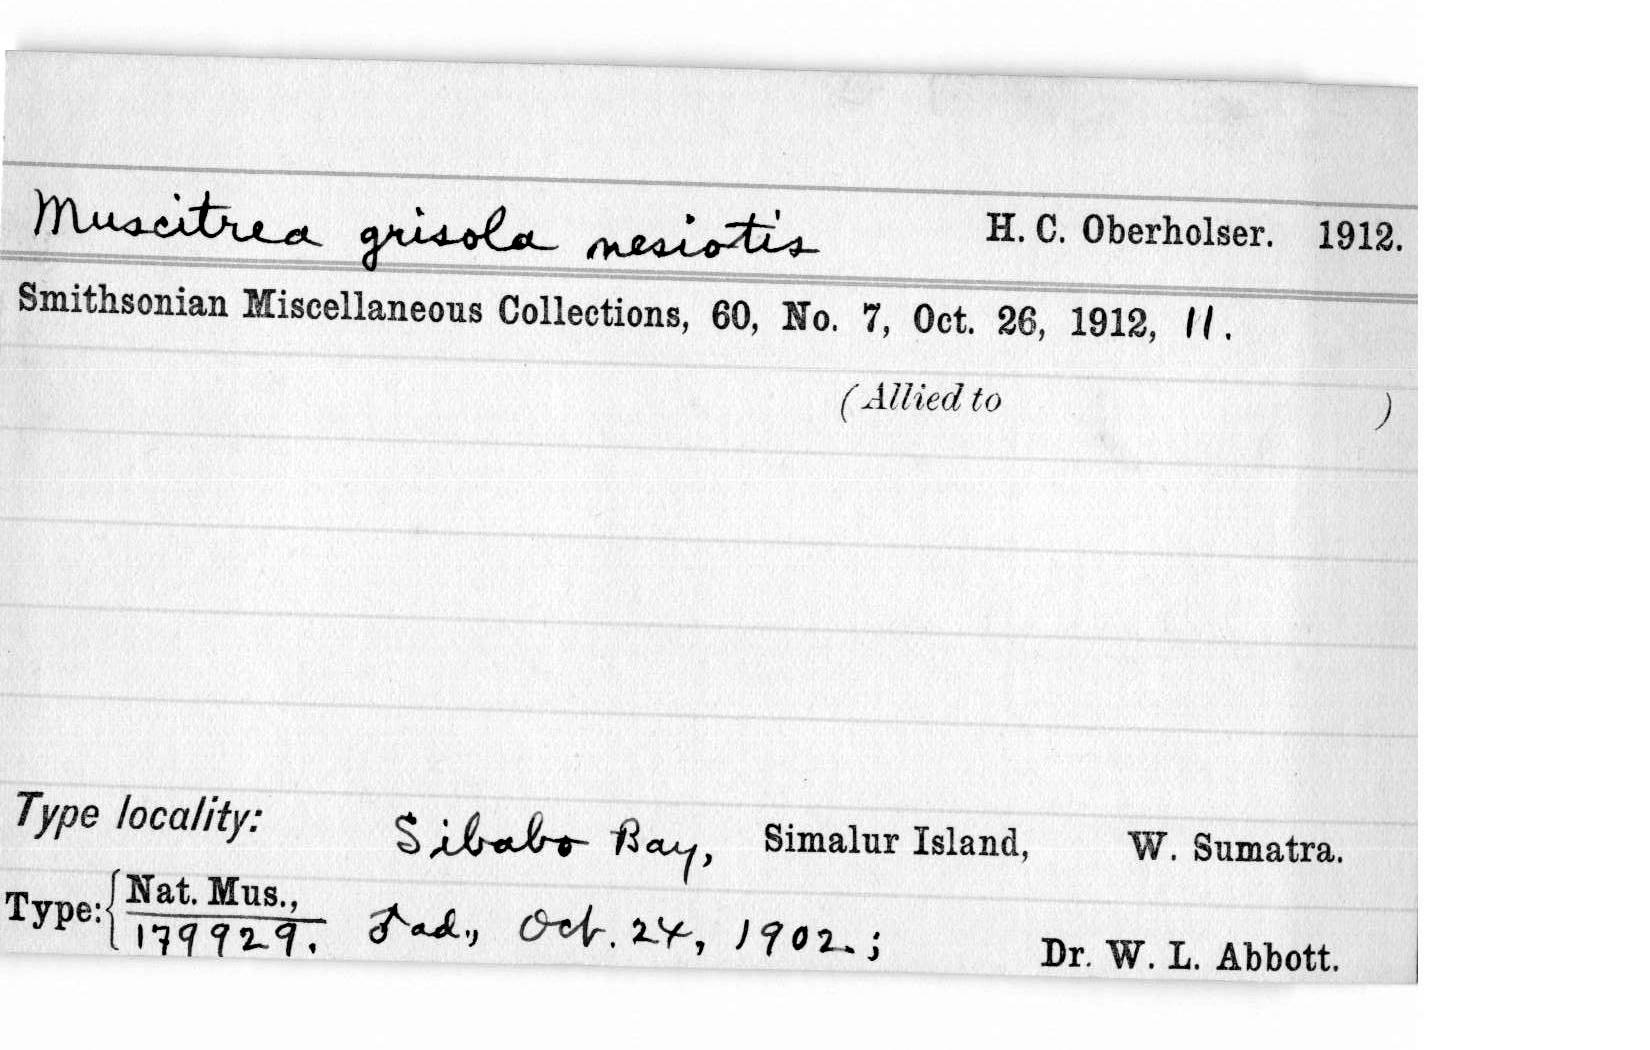 Muscitrea grisola nesiotis H. C. Oberholser. 1912.
Smithsonian Miscellaneous Collections, 60, No. 7, Oct. 26, 1912, 11.
(Allied to )
Type locality: Sibabo Bay, Simalur Island, W. Sumatra.
Type: { Nat. Mus.,
179929. ♂ ad., Oct. 24, 1902. ; Dr. W. L. Abbott.